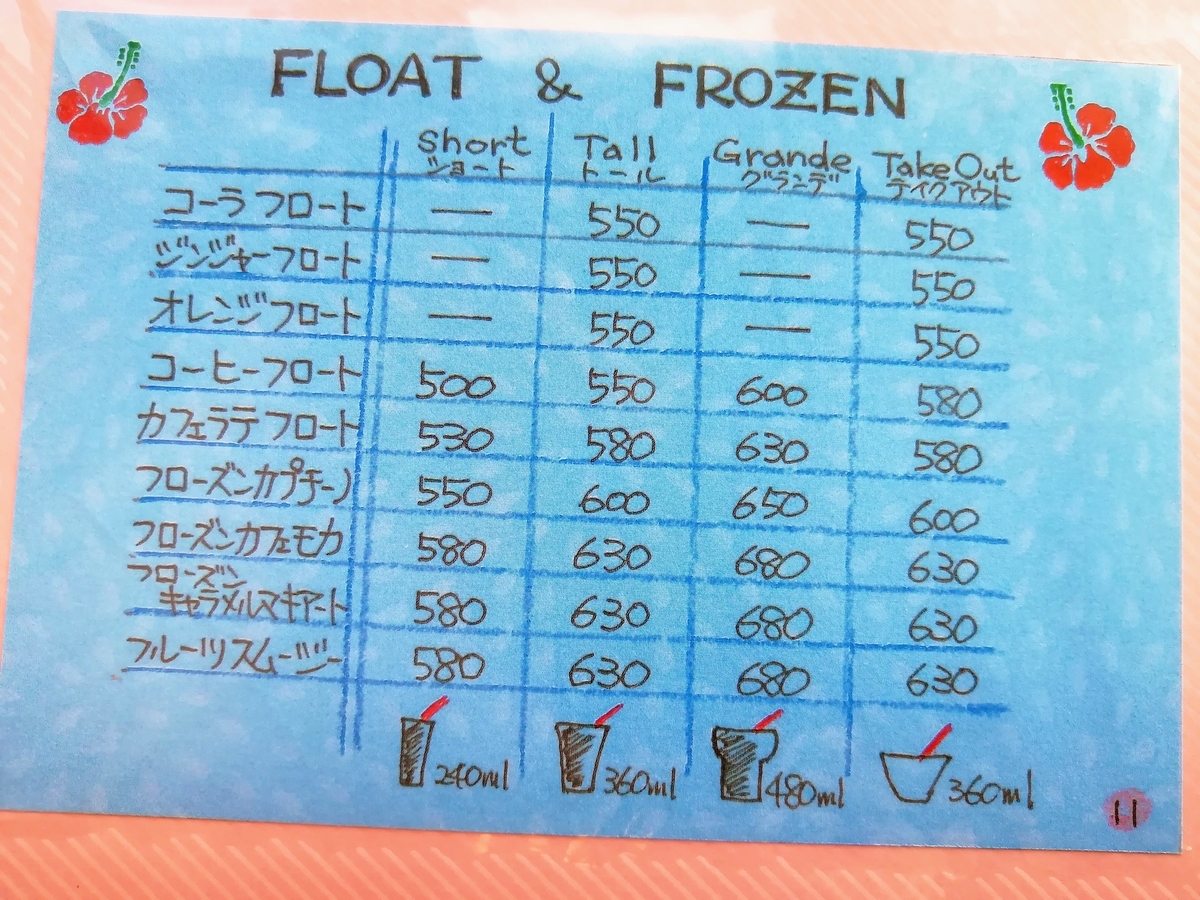 FLOAT & FROZEN
Short Tall Grande Take Out
ショート トール グランデ テイクアウト
コーラフロート — 550 — 550
ジンジャーフロート — 550 — 550
オレンジフロート — 550 — 550
コーヒーフロート 500 550 600 580
カフェラテフロート 530 580 630 580
フローズンカプチーノ 550 600 650 600
フローズンカフェモカ 580 630 680 630
フローズン
キャラメルマキアート 580 630 680 630
フルーツスムージー 580 630 680 630
240ml 360ml 480ml 360ml
11